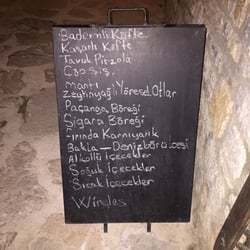 Bademli Köfte
Kaşarlı Köfte
Tavuk Pirzola
Çöp Şiş.
Mantı
Zeytinyağlı Yöresel Otlar
Paçanga Böreği
Sigara Böreği
Fırında Karnıyarık
Bakla - Deniz börülcesi
Alkollü İçecekler
Soğuk İçecekler
Sıcak İçecekler
Wines